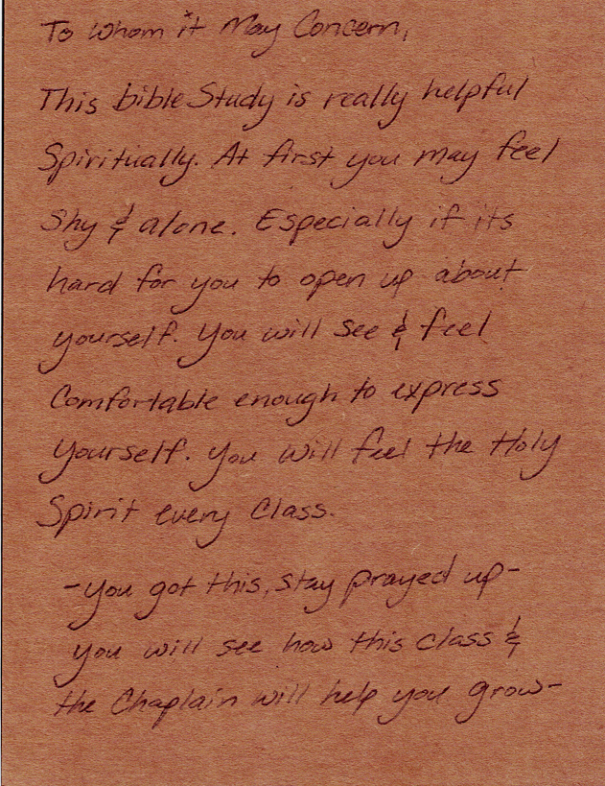 To whom it May Concern,
This bible Study is really helpful
Spiritually. At first you may feel
Shy & alone. Especially if its
hard for you to open up about
yourself. You will see & feel
Comfortable enough to express
yourself. You will feel the Holy
Spirit every Class.
-You got this, stay prayed up-
you will see how this class &
the Chaplain will help you grow-